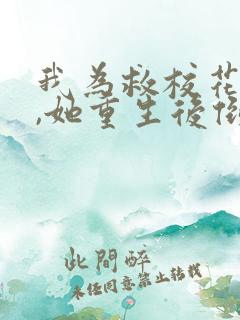 我為救校花
,她重生後
此間醉
未经同意禁止转载